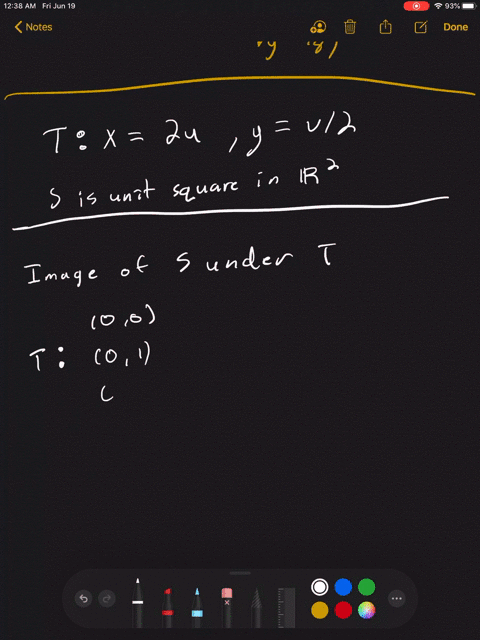 12:38 AM Fri Jun 19
93%
Notes
Done
T: x = 2u , y = v/2
S is unit square in ℝ²
Image of S under T
(0,0)
T: (0,1)
(